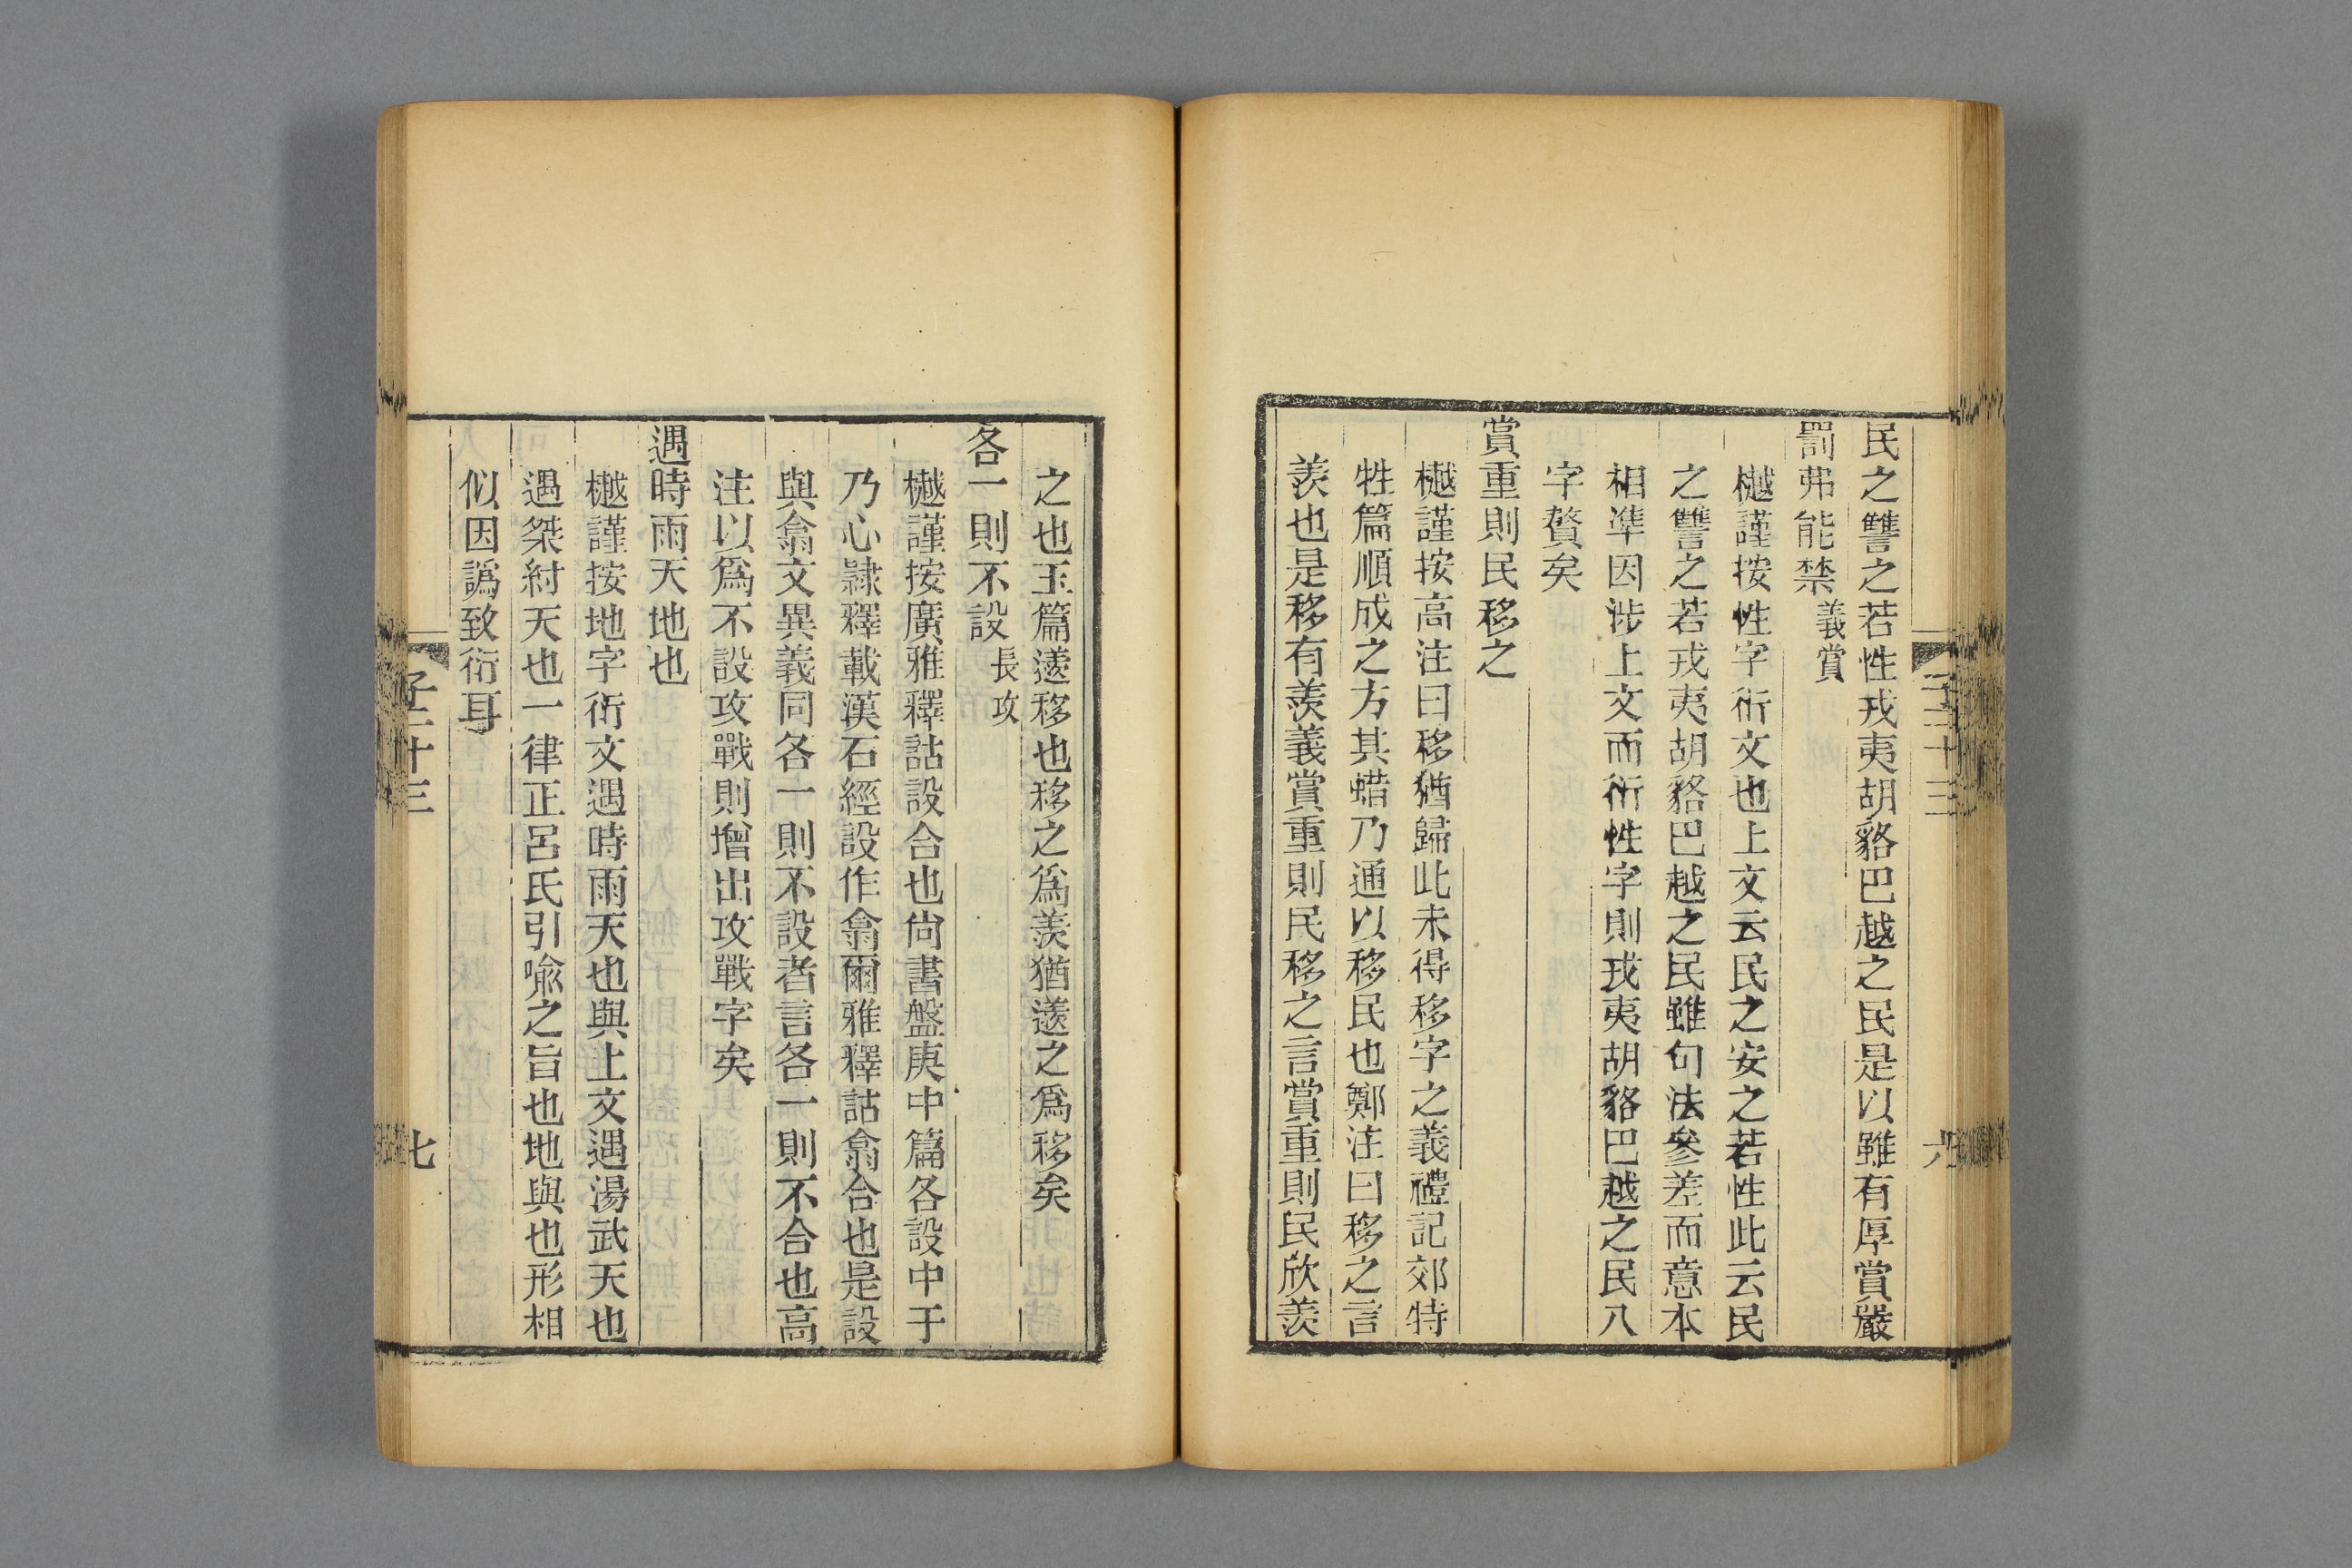 民之讐之若性戎夷胡貉巴越之民是以雖有厚賞嚴
罰弗能禁義賞
樾謹按性字衍文也上文云民之安之若性此云民
之讐之若戎夷胡貉巴越之民雖句法參差而意本
相準因涉上文而衍性字則戎夷胡貉巴越之民八
字贅矣
賞重則民移之
樾謹按高注曰移猶歸此未得移字之義禮記郊特
牲篇順成之方其蜡乃通以移民也鄭注曰移之言
羨也是移有羨義賞重則民移之言賞重則民欣羨
子二十三
六
之也玉篇遂移也移之爲羨猶遂之爲移矣
各一則不設長攻
樾謹按廣雅釋詁設合也尙書盤庚中篇各設中于
乃心隸釋載漢石經設作翕爾雅釋詁翕合也是設
與翕文異義同各一則不設者言各一則不合也高
注以爲不設攻戰則增出攻戰字矣
遇時雨天地也
樾謹按地字衍文遇時雨天也與上文遇湯武天也
遇桀紂天也一律正呂氏引喩之旨也地與也形相
似因譌致衍耳
子二十三
七